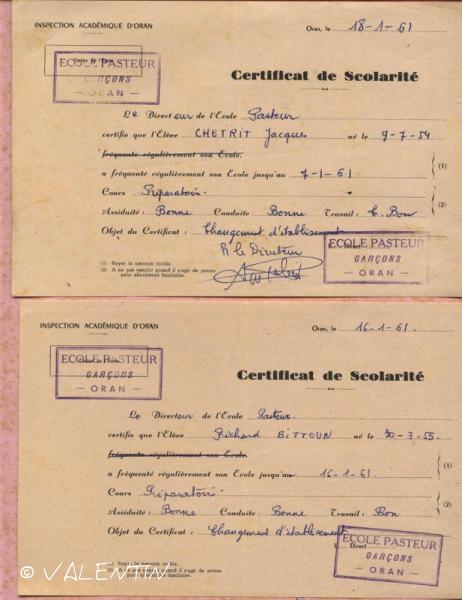 INSPECTION ACADÉMIQUE D'ORAN
Oran, le 18-1-61
ECOLE PASTEUR
GARÇONS
— ORAN —
Certificat de Scolarité
Le Directeur de l'École Pasteur
certifie que l'Élève CHETRIT Jacques né le 9-7-54
fréquente régulièrement son École.
a fréquenté régulièrement son École jusqu'au 7-1-61
(1)
Cours Préparatoire.
Assiduité : Bonne Conduite Bonne Travail : t. Bon
(2)
Objet du Certificat : Changement d'établissement
P. le Directeur
(1) Rayer la mention inutile.
(2) A ne pas remplir quand il s'agit de pièces
pour allocations familiales.
ECOLE PASTEUR
GARÇONS
— ORAN —
INSPECTION ACADÉMIQUE D'ORAN
Oran, le 16-1-61.
ECOLE PASTEUR
GARÇONS
— ORAN —
Certificat de Scolarité
Le Directeur de l'École Pasteur.
certifie que l'Élève Richard BITTOUN né le 30-3-55.
fréquente régulièrement son École.
a fréquenté régulièrement son École jusqu'au 16-1-61.
(1)
Cours Préparatoire
(2)
Assiduité : Bonne Conduite Bonne Travail : Bon
Objet du Certificat : Changement d'établissement
Direct
(1) Rayer la mention inutile.
(2) A ne pas remplir quand il s'agit de pièces
pour allocations familiales.
ECOLE PASTEUR
GARÇONS
— ORAN —
© VALENTIN